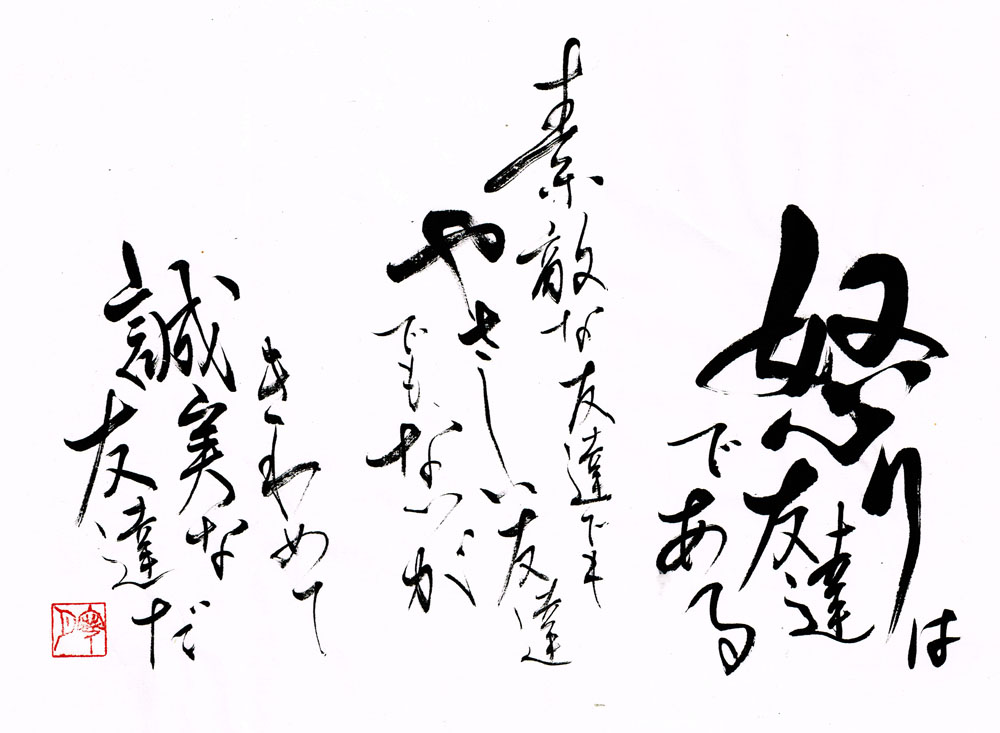 怒りは
友達
である
素敵な友達でも
やさしい友達
でもないが
きわめて
誠実な
友達だ